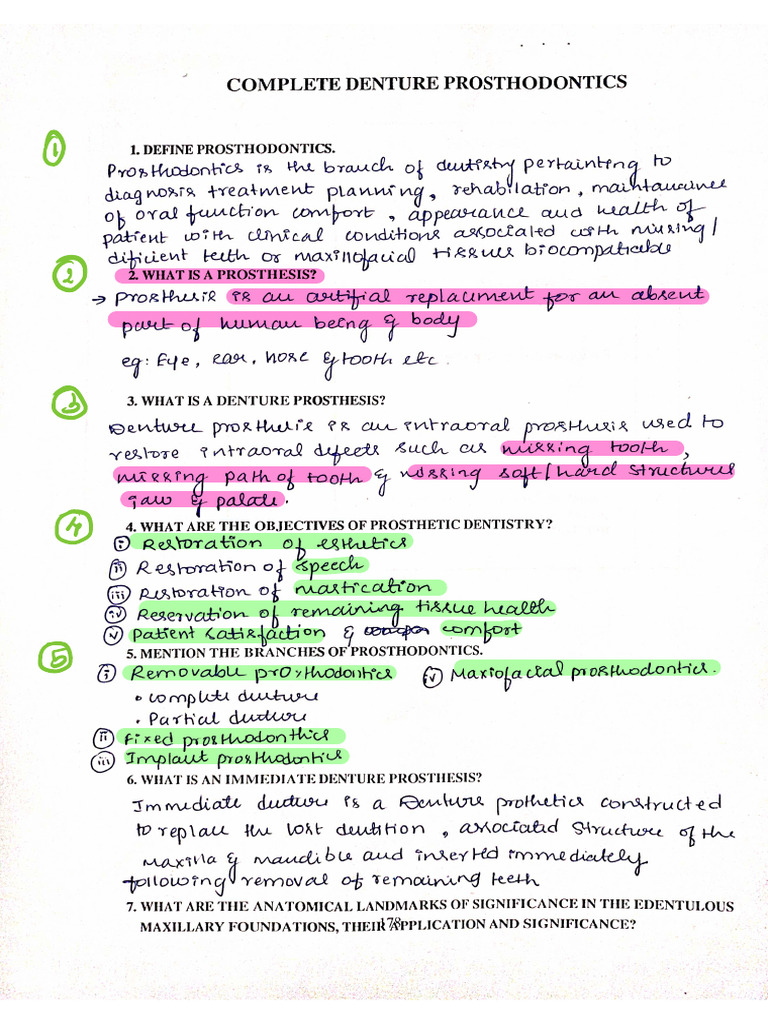 COMPLETE DENTURE PROSTHODONTICS
1
1. DEFINE PROSTHODONTICS.
Prosthodontics is the branch of dentistry pertainting to
diagnosis treatment planning, rehabilation, maintaurance
of oral function comfort, appearance and health of
patient with clinical conditions associated with missing/
dificient teeth or maxillofacial tissues biocompaticable
2
2. WHAT IS A PROSTHESIS?
→ prosthesis is an artifial replacment for an absent
part of human being & body
eg: Eye, ear, nose & tooth etc.
3
3. WHAT IS A DENTURE PROSTHESIS?
Denture prosthesis is an intraoral prosthesis used to
restore intraoral defects such as missing tooth,
missing path of tooth & missing soft/hard structures
jaw & palate.
4
4. WHAT ARE THE OBJECTIVES OF PROSTHETIC DENTISTRY?
(i) Restoration of esthetics
(ii) Restoration of speech
(iii) Restoration of mastication
(iv) Reservation of remaining tissue health
(v) Patient satisfaction & comfort
5
5. MENTION THE BRANCHES OF PROSTHODONTICS.
(i) Removable prosthodontics (iv) Maxiofacial prosthodontics.
• complete denture
• Partial denture
(ii) Fixed prosthodonthics
(iii) Implant prosthodontics
6. WHAT IS AN IMMEDIATE DENTURE PROSTHESIS?
Immediate denture is a Denture prothetics constructed
to replace the lost dentition, associated structure of the
Maxilla & mandible and inserted immediately
following removal of remaining teeth
7. WHAT ARE THE ANATOMICAL LANDMARKS OF SIGNIFICANCE IN THE EDENTULOUS
MAXILLARY FOUNDATIONS, THEIR APPLICATION AND SIGNIFICANCE?
178